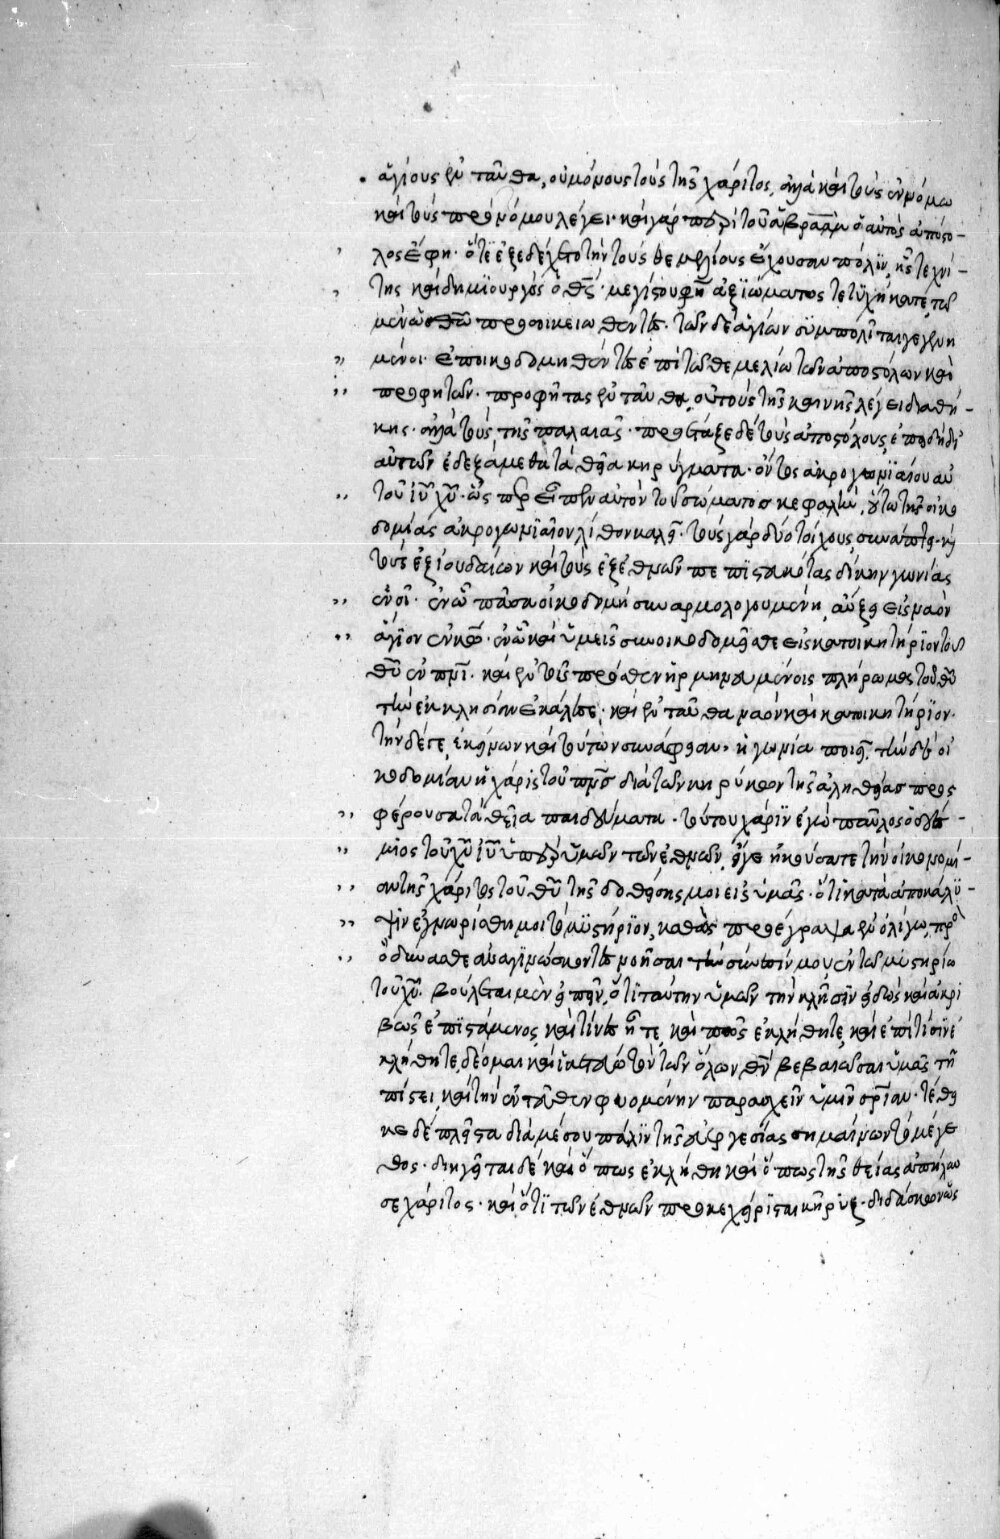 ἁγίους ἐνταῦθα, οὐ μόνους τοὺς τῆς χάριτος, ἀλλὰ καὶ τοὺς ἐν νόμω
καὶ τοὺς πρὸ νόμου λέγει· καὶ γὰρ περὶ τοῦ ἀβραὰμ ὁ αὐτὸς ἀπόστο-
λος ἔφη· ὅτι ἐξεδέχετο τὴν τοὺς θεμελίους ἔχουσαν πόλιν, ἧς τεχνί-
της καὶ δημιουργὸς ὁ θς· μεγίστου φησὶν ἀξιώματος τετυχήκατε, τῶ
μὲν θεῶ προσοικειωθέντες· τῶν δὲ ἁγίων συμπολῖται γεγενη
μένοι· ἐποικοδομηθέντες ἐπὶ τῶ θεμελίω τῶν ἀποστόλων καὶ
προφητῶν· προφήτας ἐνταῦθα, οὐ τοὺς τῆς καινῆς λέγει διαθή-
κης· ἀλλὰ τοὺς τῆς παλαιᾶς· προέταξε δὲ τοὺς ἀποστόλους, ἐπειδὴ δι'
αὐτῶν ἐδεξάμεθα τὰ θεῖα κηρύγματα· ὄντος ἀκρογωνιαίου αὐ
τοῦ ἰυ χυ· ὥσπερ εἶπεν αὐτὸν τοῦ σώματος κεφαλὴν, οὕτω τῆς οἰκο
δομίας ἀκρογωνιαῖον λίθον καλεῖ· τοὺς γὰρ δύο τοίχους συνάπτει· καὶ
τοὺς ἐξ ἰουδαίων καὶ τοὺς ἐξ ἐθνῶν πεπιστευκότας δίκην γωνίας
ἑνοῖ· ἐν ὧ πᾶσα οἰκοδομὴ συναρμολογουμένη, αὔξει εἰς ναὸν
ἅγιον ἐν κω· ἐν ὧ καὶ ὑμεῖς συνοικοδομεῖσθε εἰς κατοικητήριον τοῦ
θυ ἐν πνι· καὶ ἐν τοῖς πρόσθεν ἡρμηνευμένοις πλήρωμα τοῦ θυ
τὴν ἐκκλησίαν ἐκάλεσε· καὶ ἐνταῦθα ναὸν καὶ κατοικητήριον·
τὴν δέ γε, ἐκείνων καὶ τούτων συνάφειαν, ἡ γωνία ποιεῖ· τὴν δὲ οἰ
κοδομίαν ἡ χάρις τοῦ πνς διὰ τῶν κηρύκων τῆς ἀληθείας προσ
φέρουσα τὰ θεῖα παιδεύματα· τούτου χάριν ἐγὼ παῦλος ὁ δέσ-
μιος τοῦ χυ ἰυ ὑπὲρ ὑμῶν τῶν ἐθνῶν, εἴγε ἠκούσατε τὴν οἰκονομί-
αν τῆς χάριτος τοῦ θυ τῆς δοθείσης μοι εἰς ὑμᾶς· ὅτι κατὰ ἀποκάλυ-
ψιν ἐγνωρίσθη μοι τὸ μυστήριον, καθὼς προέγραψα ἐν ὀλίγω, πρὸς
ὃ δύνασθε ἀναγινώσκοντες νοῆσαι τὴν σύνεσίν μου ἐν τῶ μυστηρίω
τοῦ χυ. βούλεται μὲν εἰπεῖν, ὅτι ταύτην ὑμῶν τὴν κλῆσιν εἰδὼς καὶ ἀκρι
βῶς ἐπιστάμενος, καὶ τίνες ἦτε, καὶ πῶς ἐκλήθητε, καὶ ἐπὶ τίσιν ἐ
κλήθητε, δέομαι καὶ ἱκετεύω τὸν τῶν ὅλων θν βεβαιῶσαι ὑμᾶς τῆ
πίστει, καὶ τὴν ἐντεῦθεν φυομένην παρασχεῖν ὑμῖν σρίαν· τέθει
κε δὲ πλεῖστα διὰ μέσου πάλιν τῆς εὐεργεσίας σημαίνων τὸ μέγε
θος· διηγεῖται δὲ καὶ ὅπως ἐκλήθη καὶ ὅπως τῆς θείας ἀπήλαυ
σε χάριτος· καὶ ὅτι τῶν ἐθνῶν προκεχείρισται κήρυξ· διδάσκων ὡς